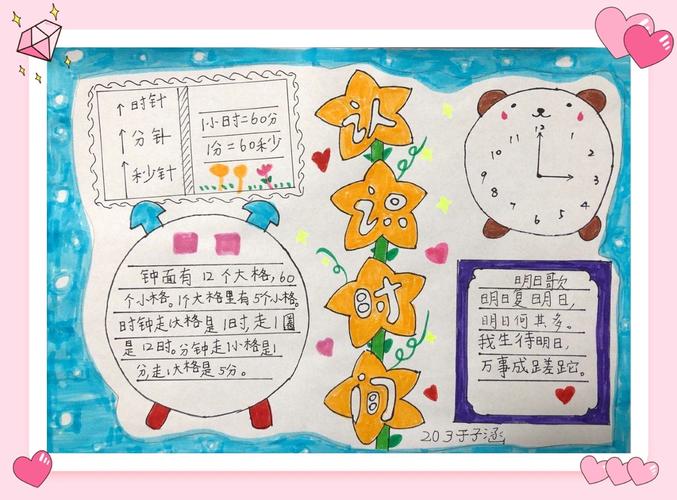 ↑时针
↑分针
↑秒针
1小时=60分
1分=60秒
认
识
时
间
12
1
2
3
4
5
6
7
8
9
10
11
钟面有12个大格,60
个小格。1个大格里有5个小格。
时钟走1大格是1时,走1圈
是12时。分钟走1小格是1
分,走1大格是5分。
明日歌
明日复明日,
明日何其多。
我生待明日,
万事成蹉跎。
203于子涵